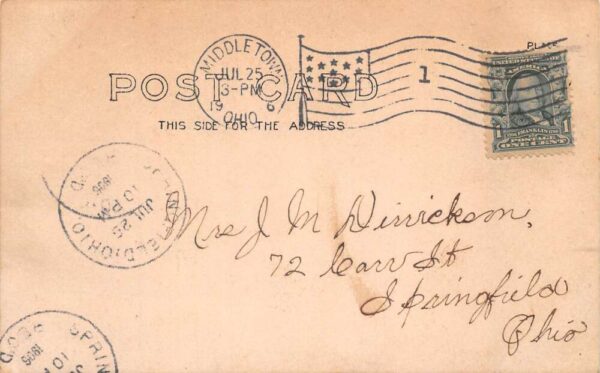 PLACE
MIDDLETOWN
JUL 25
3-PM
19 6
OHIO
1
UNITED STATES
POST CARD
THIS SIDE FOR THE ADDRESS
FRANKLIN
1 1
POSTAGE
ONE CENT
SPRINGFIELD, OHIO
JUL 25
10 PM
1906
Mrs J M Dirrickson,
72 Carr St
Springfield
Ohio
SPRIN
10
1906